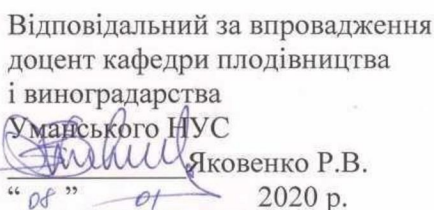 Відповідальний за впровадження
доцент кафедри плодівництва
і виноградарства
Уманського НУС
Яковенко Р.В.
“ 08 ” 01 2020 р.